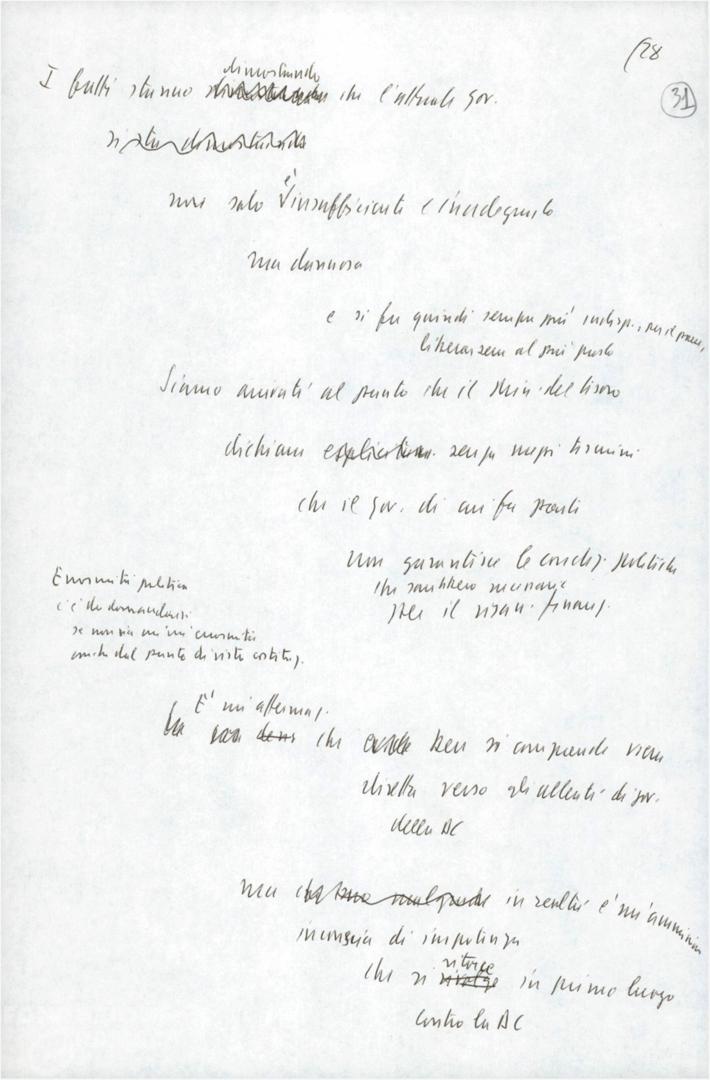 (28
31
dimostrando
I fatti stanno che l'attuale gov.
si sta dimostrando
non solo è insufficiente e inadeguato
ma dannoso
e si fa quindi sempre più indisp., per il paese,
liberarsene al più presto
Siamo arrivati al punto che il Min. del tesoro
dichiara senza mezzi termini
che il gov. di cui fa parte
non garantisce le condiz. politiche
che sarebbero necessarie
per il risan. finanz.
Enormità politica
c'è da domandarsi
se non sia un'enormità
anche dal punto di vista costituz.
È un'affermaz.
che ben si comprende sia
diretta verso gli alleati di gov.
della DC
ma in realtà è un'ammissione
inconscia di impotenza
ritorce
che si in primo luogo
contro la DC